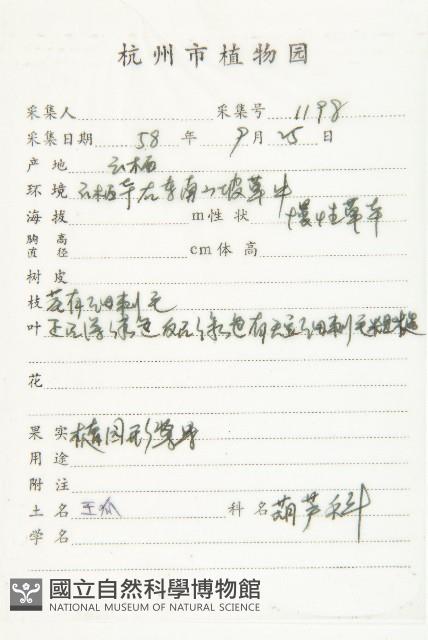 杭州市植物园
采集人 采集号 1198
采集日期 58 年 9 月 25 日
产地 云栖
环境 云栖寺右东南山坡草中
海拔 m 性状 慢性草本
胸高直径 cm 体高
树皮
枝 茎有细刺毛
叶 正面深绿色反面绿色有短细刺毛粗糙
花
果实 椭圆形浆果
用途
附注
土名 王瓜 科名 葫芦科
学名
國立自然科學博物館
NATIONAL MUSEUM OF NATURAL SCIENCE